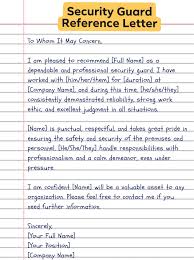 Security Guard
Reference Letter
To Whom It May Concern,
I am pleased to recommend [Full Name] as a
dependable and professional security guard. I have
worked with [him/her/them] for [duration] at
[Company Name], and during this time, [he/she/they]
consistently demonstrated reliability, strong work
ethic, and excellent judgment in all situations.
[Name] is punctual, respectful, and takes great pride in
ensuring the safety and security of the premises and
personnel. [He/She/They] handle responsibilities with
professionalism and a calm demeanor, even under
pressure.
I am confident [Name] will be a valuable asset to any
organization. Please feel free to contact me if you
need further information.
Sincerely,
[Your Full Name]
[Your Position]
[Company Name]